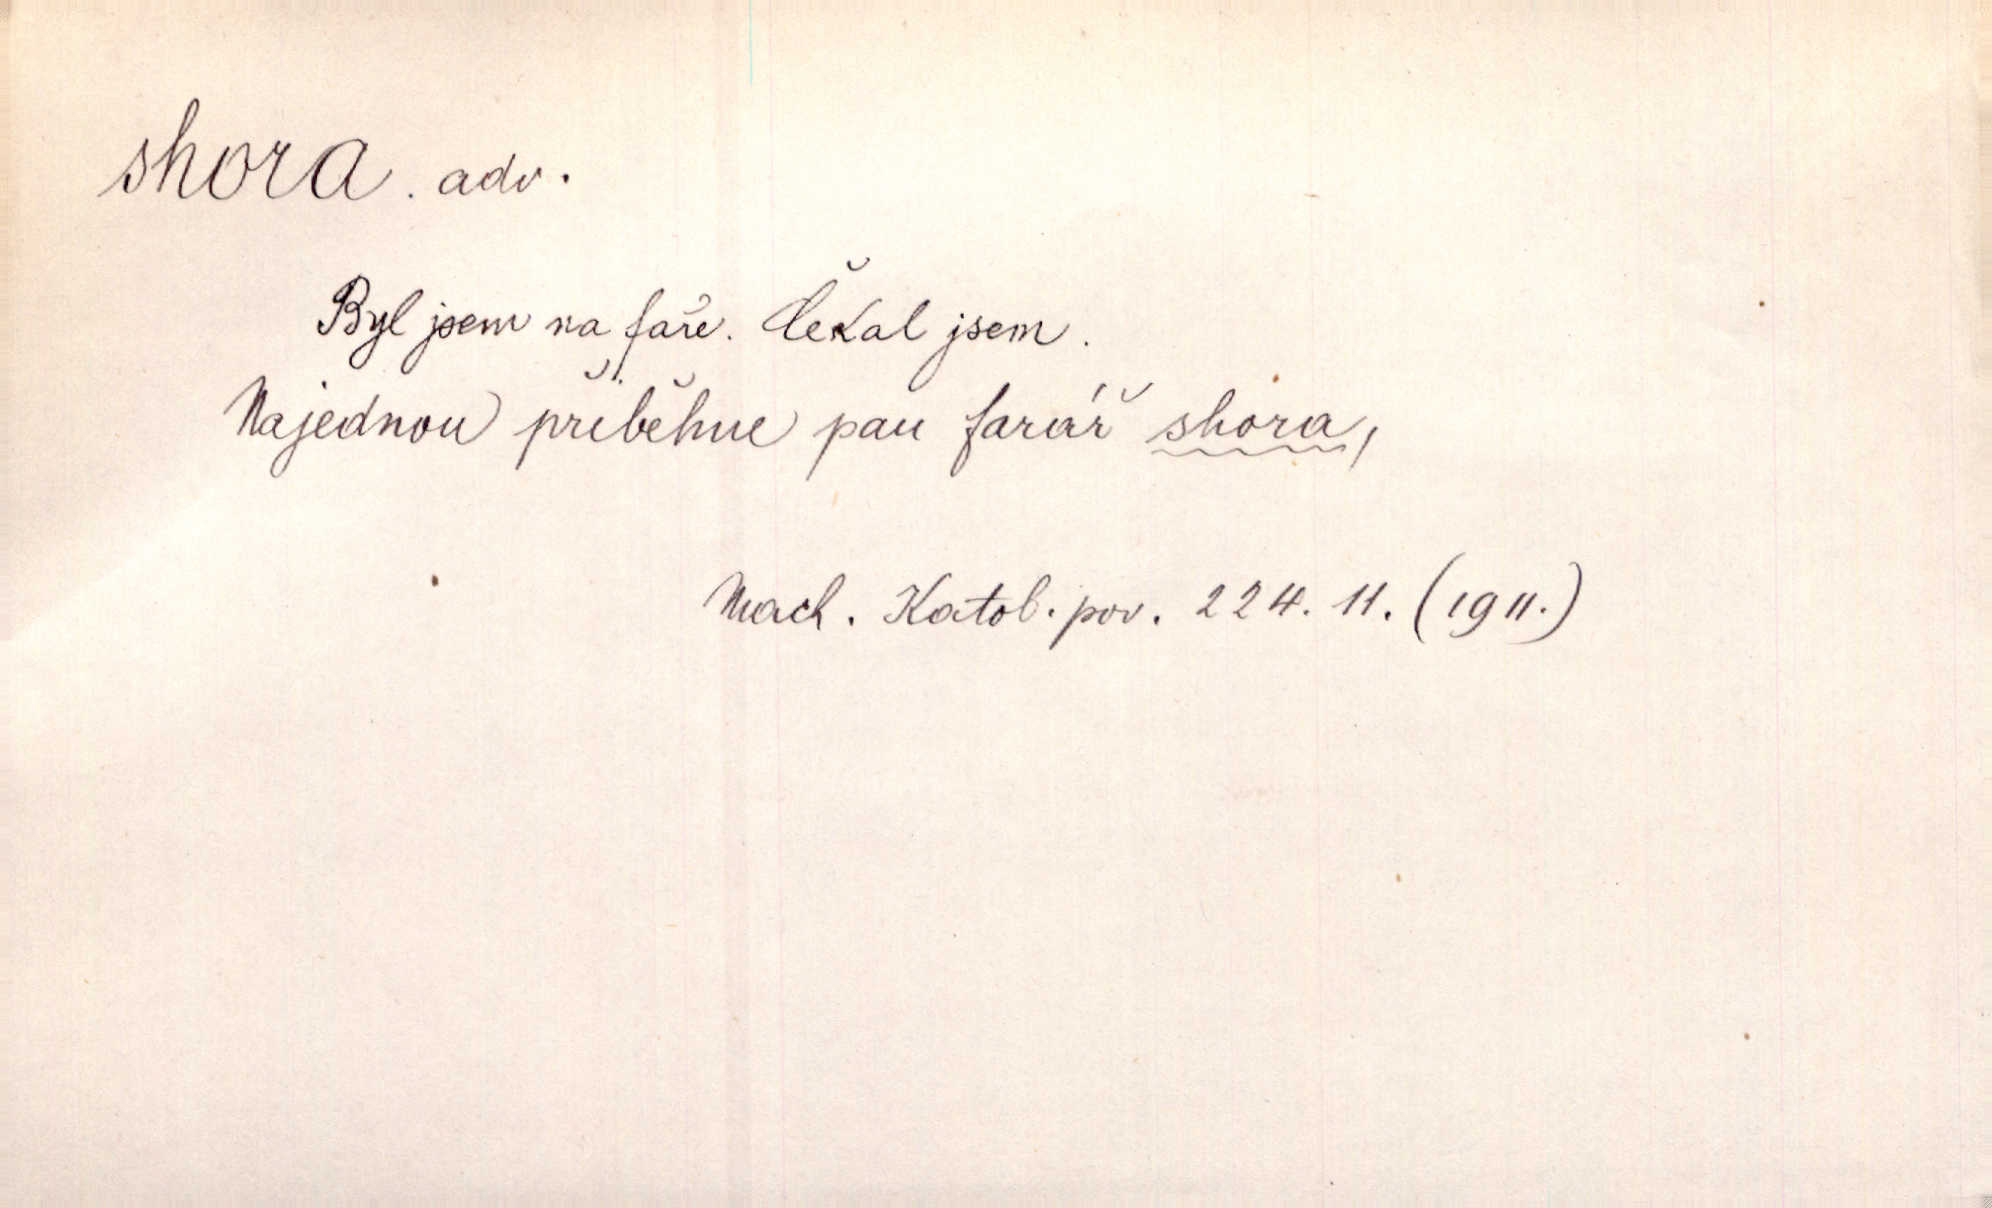 shora. adv.
Byl jsem na faře. Čekal jsem.
Najednou přiběhne pan farář shora,
Mach. Katol. pov. 224. 11. (1911.)